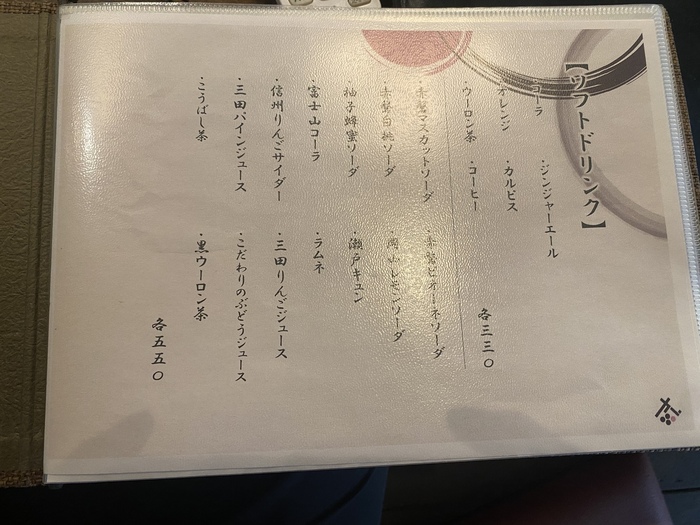 【ソフトドリンク】
・コーラ ・ジンジャーエール
・オレンジ ・カルピス
・ウーロン茶 ・コーヒー
各三三〇
・赤磐マスカットソーダ ・赤磐ピオーネソーダ
・赤磐白桃ソーダ ・岡山レモンソーダ
・柚子蜂蜜ソーダ ・瀬戸キュン
・富士山コーラ ・ラムネ
・信州りんごサイダー ・三田りんごジュース
・三田パインジュース ・こだわりのぶどうジュース
・こうばし茶 ・黒ウーロン茶
各五五〇